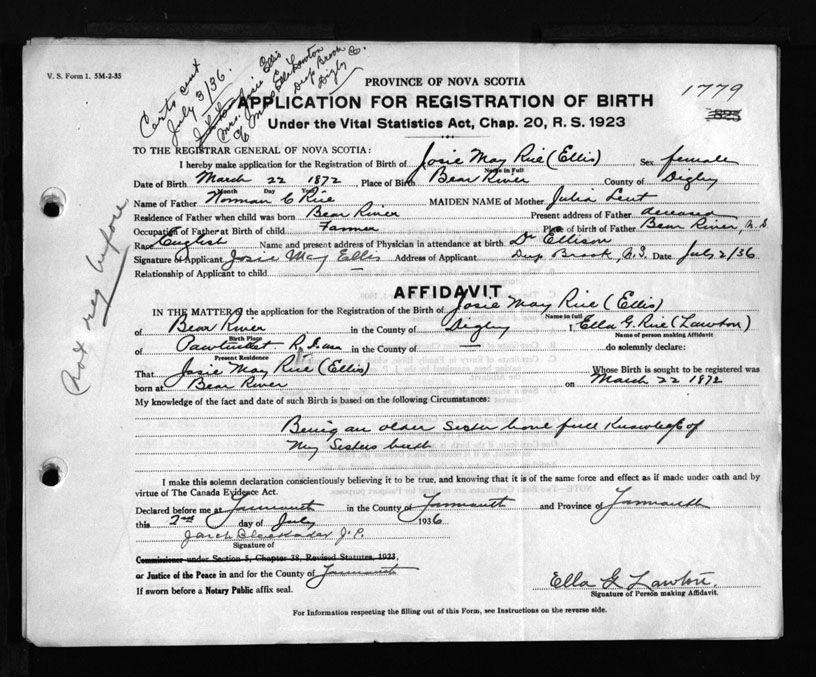 V. S. Form 1. 5M-2-35
Certs sent
July 3/36.
Mrs. Josie Ellis
c/o Mrs Ella Lawton
Deep Brook
Digby Co.
PROVINCE OF NOVA SCOTIA
1779
APPLICATION FOR REGISTRATION OF BIRTH
823
Under the Vital Statistics Act, Chap. 20, R. S. 1923
TO THE REGISTRAR GENERAL OF NOVA SCOTIA:
I hereby make application for the Registration of Birth of Josie May Rice (Ellis) Sex female
Name in Full
Date of Birth March 22 1872, Place of Birth Bear River County of Digby
Month Day Year
Name of Father Norman C Rice MAIDEN NAME of Mother Julia Lent
Residence of Father when child was born Bear River Present address of Father deceased
Occupation of Father at Birth of child Farmer Place of birth of Father Bear River, N.S.
Race English Name and present address of Physician in attendance at birth Dr Ellison
Signature of Applicant Josie May Ellis Address of Applicant Deep Brook, N.S. Date July 2/36
Relationship of Applicant to child
Not reg before
AFFIDAVIT
IN THE MATTER of the application for the Registration of Birth of Josie May Rice (Ellis)
Name in full
of Bear River in the County of Digby I, Ella G. Rice (Lawton)
Birth Place Name of person making Affidavit
of Pawtucket in the County of — do solemnly declare:
Present Residence
That Josie May Rice (Ellis) Whose Birth is sought to be registered was
born at Bear River on March 22 1872
My knowledge of the fact and date of such Birth is based on the following Circumstances:
Being an older sister have full knowledge of
my sisters birth
I make this solemn declaration conscientiously believing it to be true, and knowing that it is of the same force and effect as if made under oath and by
virtue of The Canada Evidence Act.
Declared before me at Yarmouth in the County of Yarmouth and Province of Yarmouth
this 2nd day of July 1936
J.P.
Signature of
Commissioner under Section 5, Chapter 38, Revised Statutes, 1923,
or Justice of the Peace in and for the County of Yarmouth
If sworn before a Notary Public affix seal.
Ella G Lawton.
Signature of Person making Affidavit.
For Information respecting the filling out of this Form, see Instructions on the reverse side.